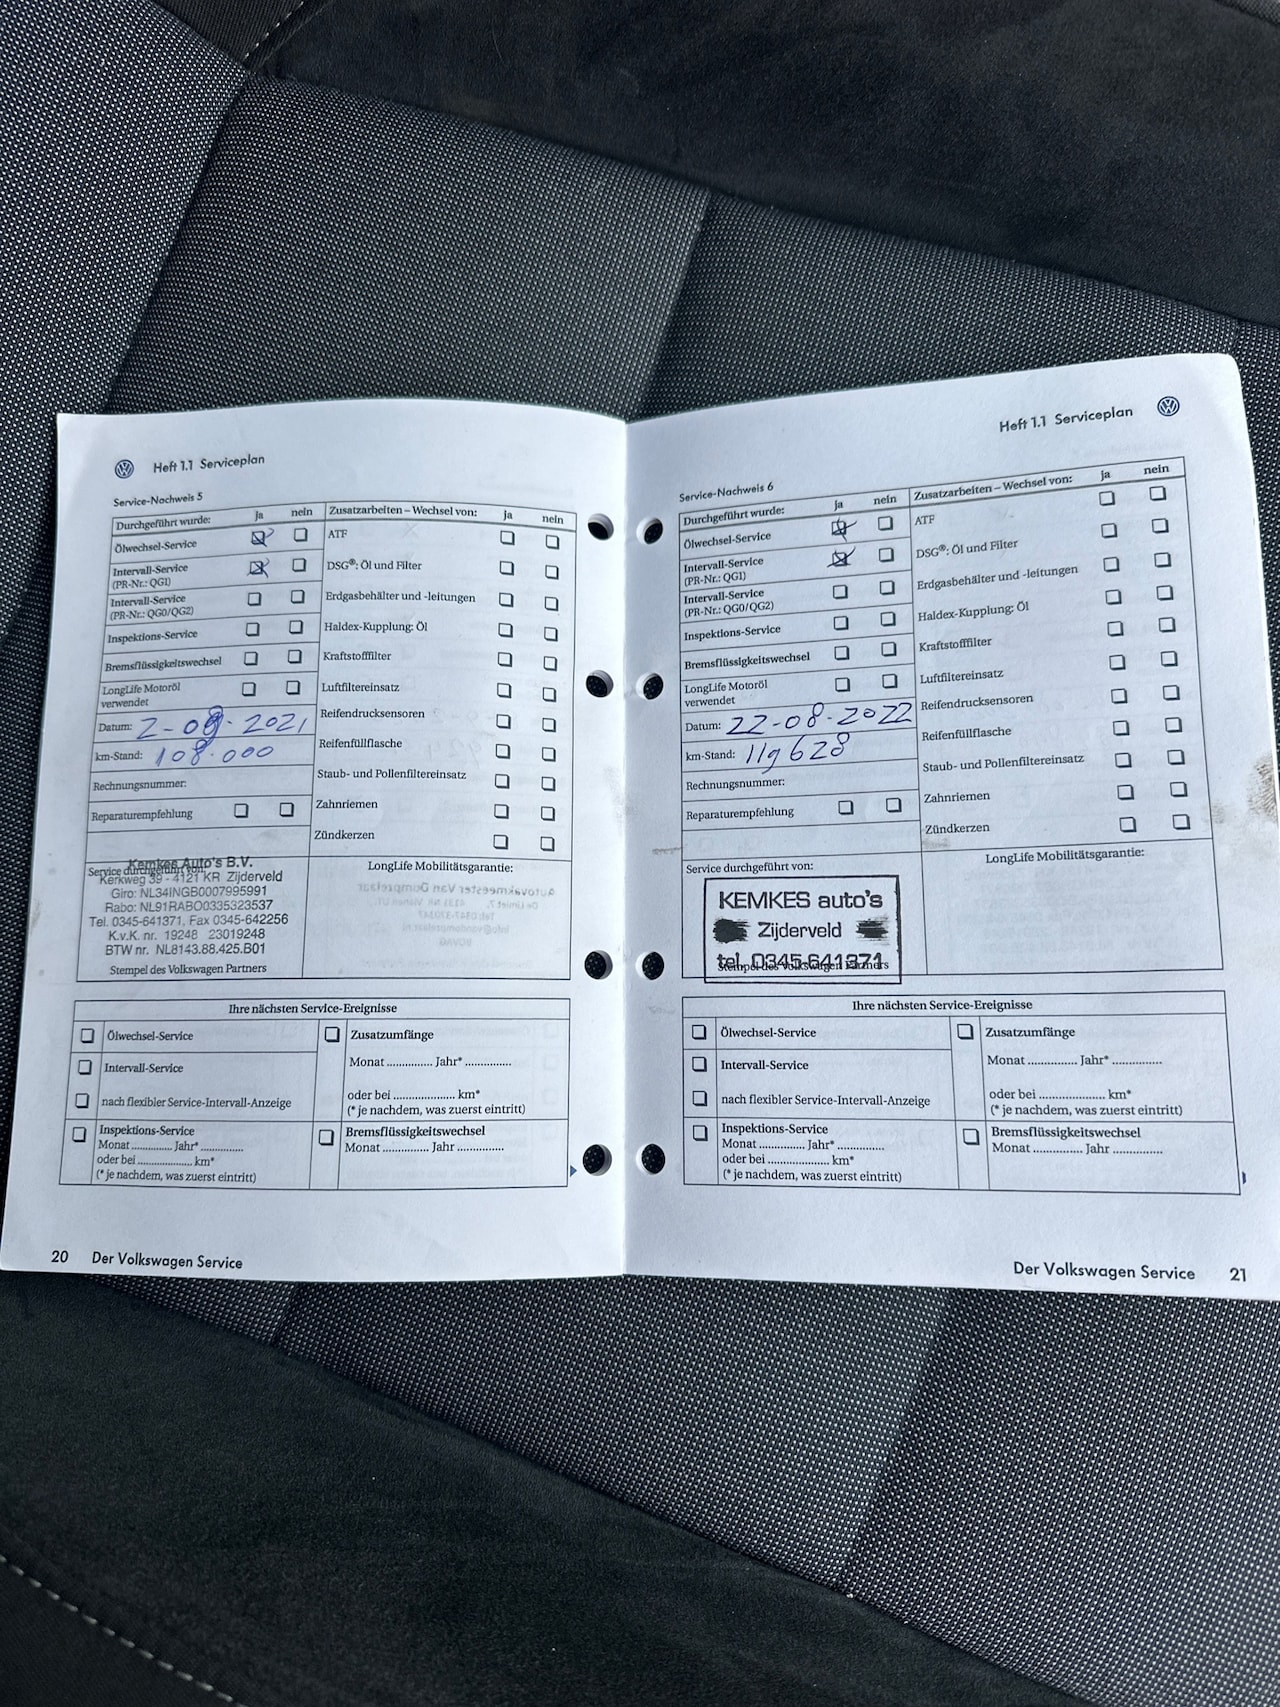 Heft 1.1 Serviceplan
Service-Nachweis 5
Durchgeführt wurde: ja nein
Ölwechsel-Service
Intervall-Service
(PR-Nr.: QG1)
Intervall-Service
(PR-Nr.: QG0/QG2)
Inspektions-Service
Bremsflüssigkeitswechsel
LongLife Motoröl
verwendet
Datum: 2-08-2021
km-Stand: 108.000
Rechnungsnummer:
Reparaturempfehlung
Zusatzarbeiten – Wechsel von: ja nein
ATF
DSG®: Öl und Filter
Erdgasbehälter und -leitungen
Haldex-Kupplung: Öl
Kraftstofffilter
Luftfiltereinsatz
Reifendrucksensoren
Reifenfüllflasche
Staub- und Pollenfiltereinsatz
Zahnriemen
Zündkerzen
Service durchgeführt von:
Kemkes Auto's B.V.
Kerkweg 39 - 4121 KR Zijderveld
Giro: NL34INGB0007995991
Rabo: NL91RABO0335323537
Tel. 0345-641371, Fax 0345-642256
K.v.K. nr. 19248 23019248
BTW nr. NL8143.88.425.B01
Stempel des Volkswagen Partners
LongLife Mobilitätsgarantie:
Ihre nächsten Service-Ereignisse
Ölwechsel-Service
Intervall-Service
nach flexibler Service-Intervall-Anzeige
Inspektions-Service
Monat .............. Jahr* ..............
oder bei .................... km*
(* je nachdem, was zuerst eintritt)
Zusatzumfänge
Monat ............... Jahr* ...............
oder bei .................... km*
(* je nachdem, was zuerst eintritt)
Bremsflüssigkeitswechsel
Monat ............... Jahr ...............
20 Der Volkswagen Service
Heft 1.1 Serviceplan
Service-Nachweis 6
Durchgeführt wurde: ja nein
Ölwechsel-Service
Intervall-Service
(PR-Nr.: QG1)
Intervall-Service
(PR-Nr.: QG0/QG2)
Inspektions-Service
Bremsflüssigkeitswechsel
LongLife Motoröl
verwendet
Datum: 22-08-2022
km-Stand: 119628
Rechnungsnummer:
Reparaturempfehlung
Zusatzarbeiten – Wechsel von: ja nein
ATF
DSG®: Öl und Filter
Erdgasbehälter und -leitungen
Haldex-Kupplung: Öl
Kraftstofffilter
Luftfiltereinsatz
Reifendrucksensoren
Reifenfüllflasche
Staub- und Pollenfiltereinsatz
Zahnriemen
Zündkerzen
Service durchgeführt von:
KEMKES auto's
Zijderveld
tel. 0345-641371
Stempel des Volkswagen Partners
LongLife Mobilitätsgarantie:
Ihre nächsten Service-Ereignisse
Ölwechsel-Service
Intervall-Service
nach flexibler Service-Intervall-Anzeige
Inspektions-Service
Monat .............. Jahr* ..............
oder bei .................... km*
(* je nachdem, was zuerst eintritt)
Zusatzumfänge
Monat ............... Jahr* ...............
oder bei .................... km*
(* je nachdem, was zuerst eintritt)
Bremsflüssigkeitswechsel
Monat ............... Jahr ...............
Der Volkswagen Service 21